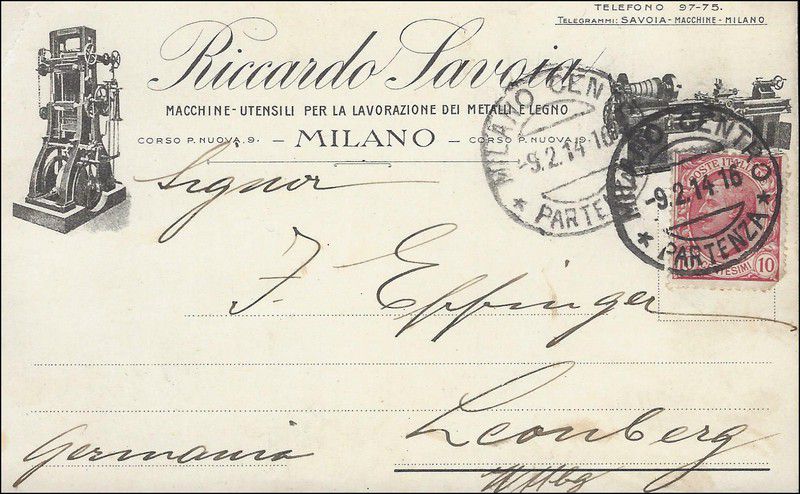 TELEFONO 97-75.
TELEGRAMMI: SAVOIA - MACCHINE - MILANO
Riccardo Savoia
MACCHINE-UTENSILI PER LA LAVORAZIONE DEI METALLI E LEGNO
CORSO P. NUOVA, 9. - MILANO - CORSO P. NUOVA, 9.
MILANO CENTRO
-9.2.14-16
* PARTENZA *
MILANO CENTRO
-9.2.14-16
* PARTENZA *
POSTE ITALIANE
CENTESIMI 10
Signor
F. Effinger
Leonberg
Germania
Wttbg